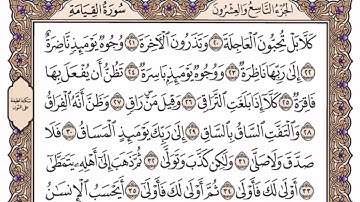 الجزء التاسع والعشرون سورة القيامة
كَلَّا بَلْ تُحِبُّونَ ٱلْعَاجِلَةَ ٢٠ وَتَذَرُونَ ٱلْآخِرَةَ ٢١ وُجُوهٌ يَوْمَئِذٍ نَّاضِرَةٌ
٢٢ إِلَىٰ رَبِّهَا نَاظِرَةٌ ٢٣ وَوُجُوهٌ يَوْمَئِذٍۭ بَاسِرَةٌ ٢٤ تَظُنُّ أَن يُفْعَلَ بِهَا
فَاقِرَةٌ ٢٥ كَلَّآ إِذَا بَلَغَتِ ٱلتَّرَاقِىَ ٢٦ وَقِيلَ مَنْ ۜ رَاقٍ ٢٧ وَظَنَّ أَنَّهُ ٱلْفِرَاقُ
٢٨ وَٱلْتَفَّتِ ٱلسَّاقُ بِٱلسَّاقِ ٢٩ إِلَىٰ رَبِّكَ يَوْمَئِذٍ ٱلْمَسَاقُ ٣٠ فَلَا
صَدَّقَ وَلَا صَلَّىٰ ٣١ وَلَٰكِن كَذَّبَ وَتَوَلَّىٰ ٣٢ ثُمَّ ذَهَبَ إِلَىٰٓ أَهْلِهِۦ يَتَمَطَّىٰٓ
٣٣ أَوْلَىٰ لَكَ فَأَوْلَىٰ ٣٤ ثُمَّ أَوْلَىٰ لَكَ فَأَوْلَىٰٓ ٣٥ أَيَحْسَبُ ٱلْإِنسَٰنُ